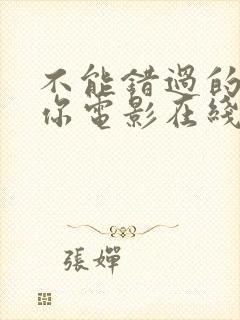 不能錯過的
你電影在綫
張嬋